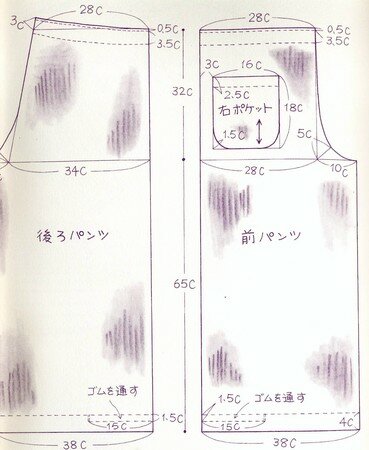 28C
3C
0.5C
3.5C
32C
34C
後ろパンツ
65C
ゴムを通す
15C
1.5C
38C
28C
0.5C
3.5C
3C
16C
2.5C
右ポケット
18C
1.5C
5C
28C
10C
前パンツ
1.5C
ゴムを通す
15C
4C
38C